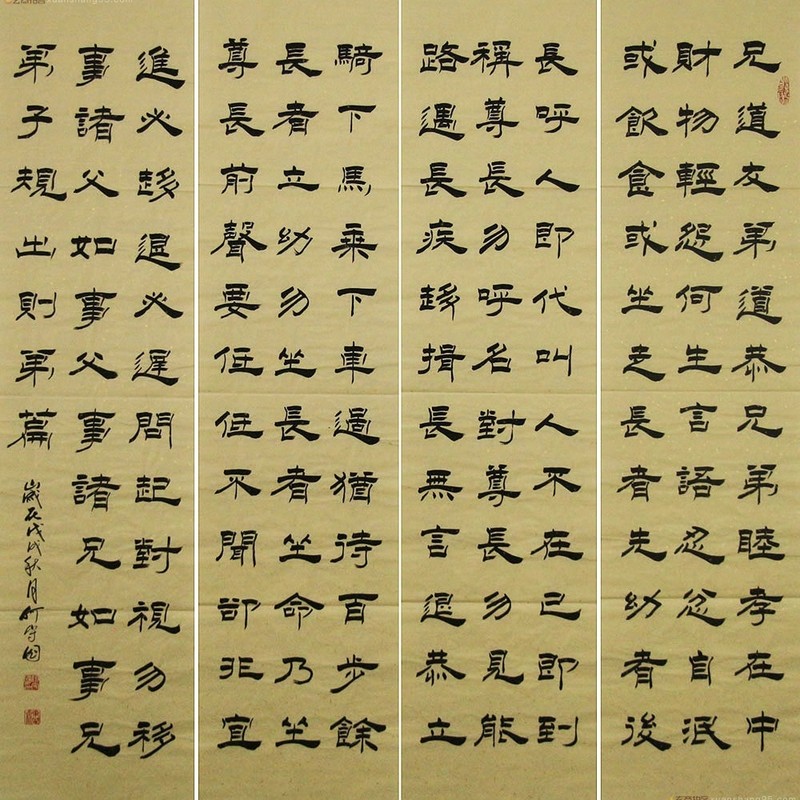 兄道友弟道恭兄弟睦孝在中
財物輕怨何生言語忍忿自泯
或飲食或坐走長者先幼者後
長呼人即代叫人不在己即到
稱尊長勿呼名對尊長勿見能
路遇長疾趨揖長無言退恭立
騎下馬乘下車過猶待百步餘
長者立幼勿坐長者坐命乃坐
尊長前聲要低低不聞卻非宜
進必趨退必遲問起對視勿移
事諸父如事父事諸兄如事兄
弟子規出則弟篇
歲在戊戌秋月